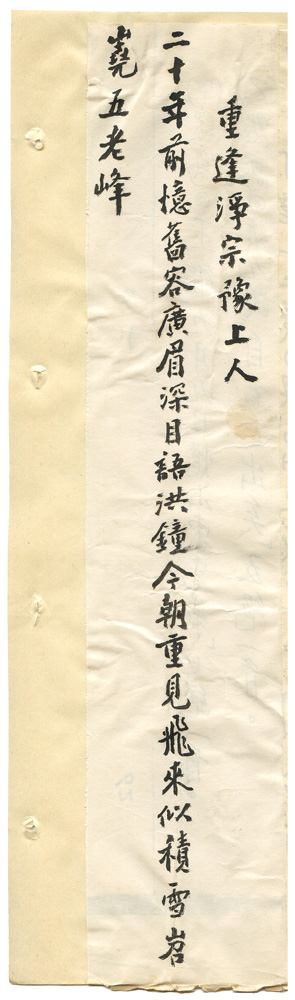 重逢淨宗豫上人
二十年前憶舊容廣眉深目語洪鐘今朝重見飛來似積雪岧
嶤五老峰